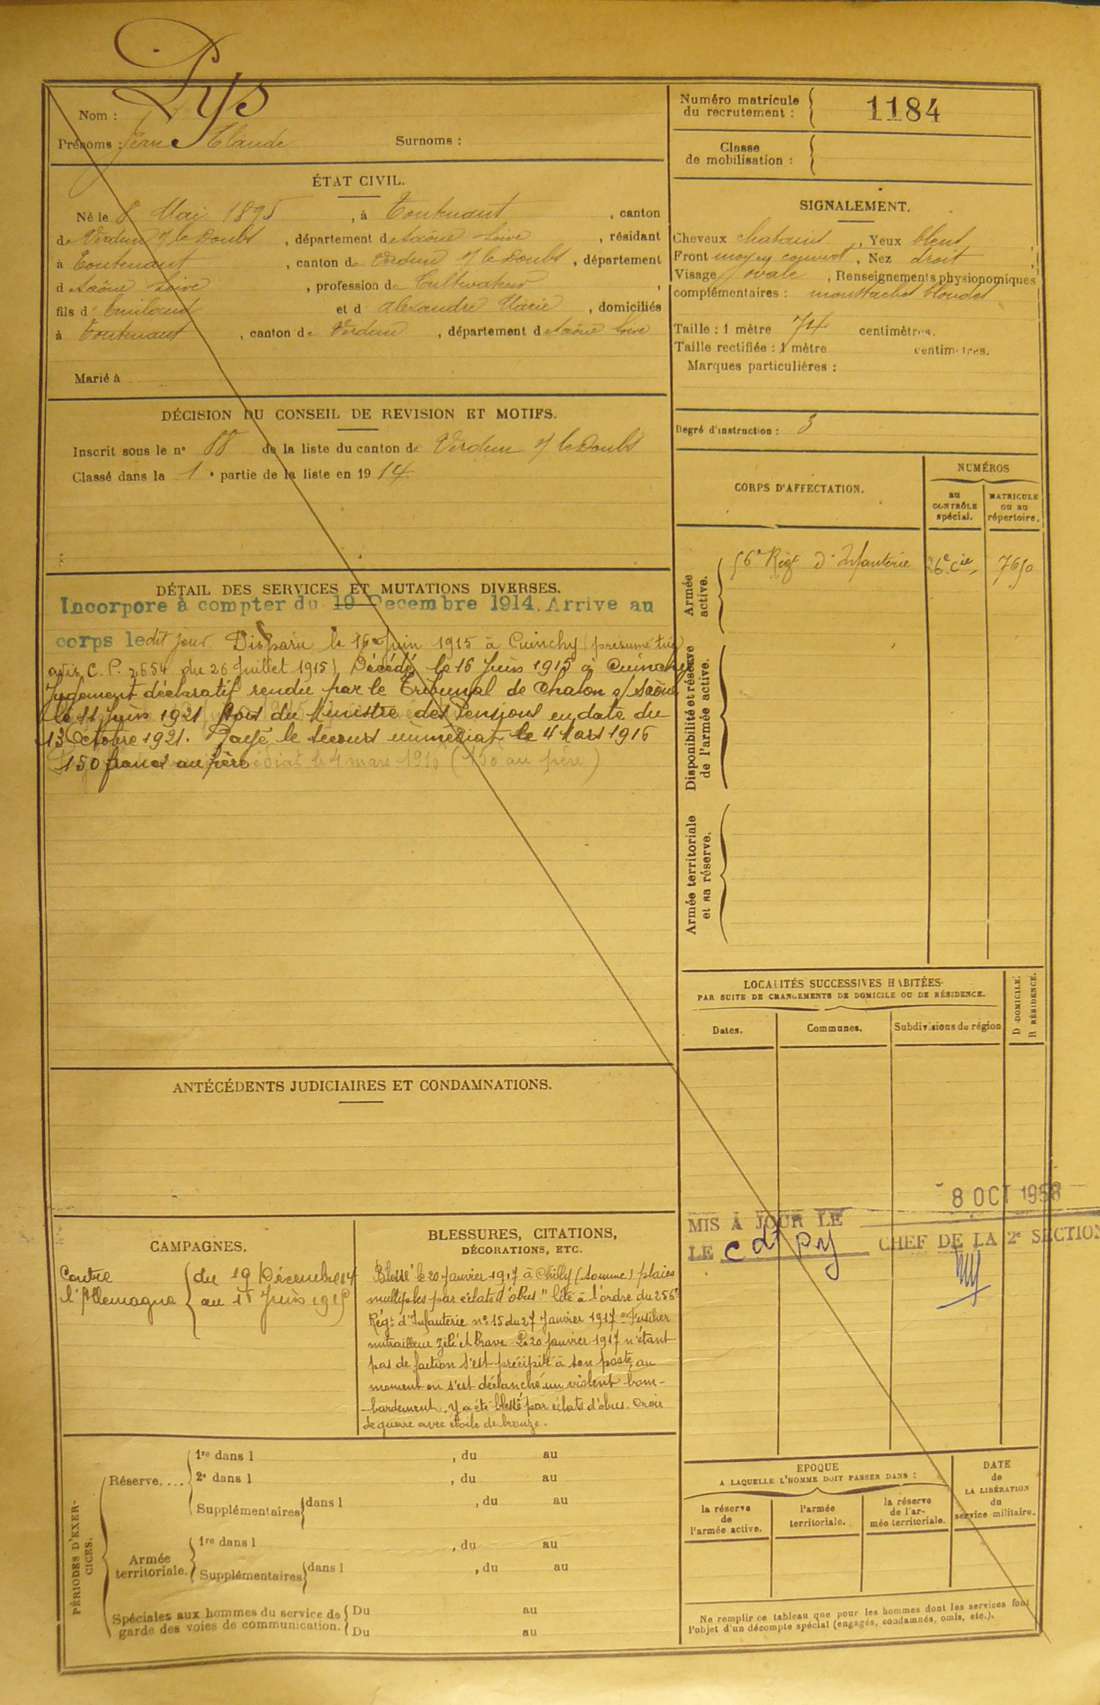 Nom : Pys
Prénoms : Jean Claude Surnoms :
Numéro matricule du recrutement : 1184
Classe de mobilisation :
ÉTAT CIVIL.
Né le 8 Mai 1895, à Toutenant, canton
de Verdun s/ le Doubs, département de Saône Loire, résidant
à Toutenant, canton de Verdun s/ le Doubs, département
de Saône Loire, profession de Cultivateur,
fils d' et d' Alexandre Marie, domiciliés
à Toutenant, canton de Verdun, département de Saône Loire
Marié à
SIGNALEMENT.
Cheveux chatains, Yeux bleus,
Front moyen, Nez droit,
Visage ovale, Renseignements physionomiques
complémentaires : moustaches blondes
Taille : 1 mètre 74 centimètres.
Taille rectifiée : 1 mètre centimètres.
Marques particulières :
Degré d'instruction : 3
DÉCISION DU CONSEIL DE REVISION ET MOTIFS.
Inscrit sous le n° 88 de la liste du canton de Verdun s/ le Doubs
Classé dans la 1e partie de la liste en 1914.
DÉTAIL DES SERVICES ET MUTATIONS DIVERSES.
Incorporé à compter du 19 Decembre 1914. Arrive au
corps ledit jour. Disparu le 16 Juin 1915 à Cuinchy (présumé tué)
avis C. P. 2654 du 26 Juillet 1915) Décédé le 16 Juin 1915 à Cuinchy
Jugement déclaratif rendu par le Tribunal de Chalon s/ Saône
le 11 Juin 1921 Avis du Ministre des Pensions en date du
13 Octobre 1921. Payé le secours immédiat le 4 Mars 1916
150 francs au père
le 4 mars 1916 (150 au père)
CORPS D'AFFECTATION.
NUMÉROS
au CONTRÔLE spécial.
MATRICULE ou au répertoire.
Armée active.
56e Régt d'Infanterie 26e Cie 7650
Disponibilité et réserve de l'armée active.
Armée territoriale et sa réserve.
LOCALITÉS SUCCESSIVES HABITÉES
PAR SUITE DE CHANGEMENTS DE DOMICILE OU DE RÉSIDENCE.
Dates. Communes. Subdivisions de région
D DOMICILE. R RÉSIDENCE.
ANTÉCÉDENTS JUDICIAIRES ET CONDAMNATIONS.
8 OCT 1958
MIS À JOUR LE
LE CHEF DE LA 2e SECTION
CAMPAGNES.
Contre l'Allemagne
du 19 Décembre 14
au 16 Juin 1915
BLESSURES, CITATIONS,
DÉCORATIONS, ETC.
Blessé le 20 Janvier 1917 à Chilly (Somme) plaies
multiples par éclats d'obus " Cité à l'ordre du 256e
Régt d'Infanterie n° 15 du 27 Janvier 1917 " Fusilier
mitrailleur zélé et brave. Le 20 Janvier 1917 n'étant
pas de faction s'est précipité à son poste au
moment où s'est déclanché un violent bom-
bardement. Y a été blessé par éclats d'obus. Croix
de guerre avec étoile de bronze.
PÉRIODES D'EXERCICES.
Réserve....
1re dans l , du au
2e dans l , du au
Supplémentaires dans l , du au
Armée territoriale.
1re dans l , du au
Supplémentaires dans l , du au
Spéciales aux hommes du service de garde des voies de communication.
Du au
Du au
EPOQUE
A LAQUELLE L'HOMME DOIT PASSER DANS :
la réserve de l'armée active.
l'armée territoriale.
la réserve de l'armée territoriale.
DATE de LA LIBÉRATION du service militaire.
Ne remplir ce tableau que pour les hommes dont les services font
l'objet d'un décompte spécial (engagés, condamnés, omis, etc.).